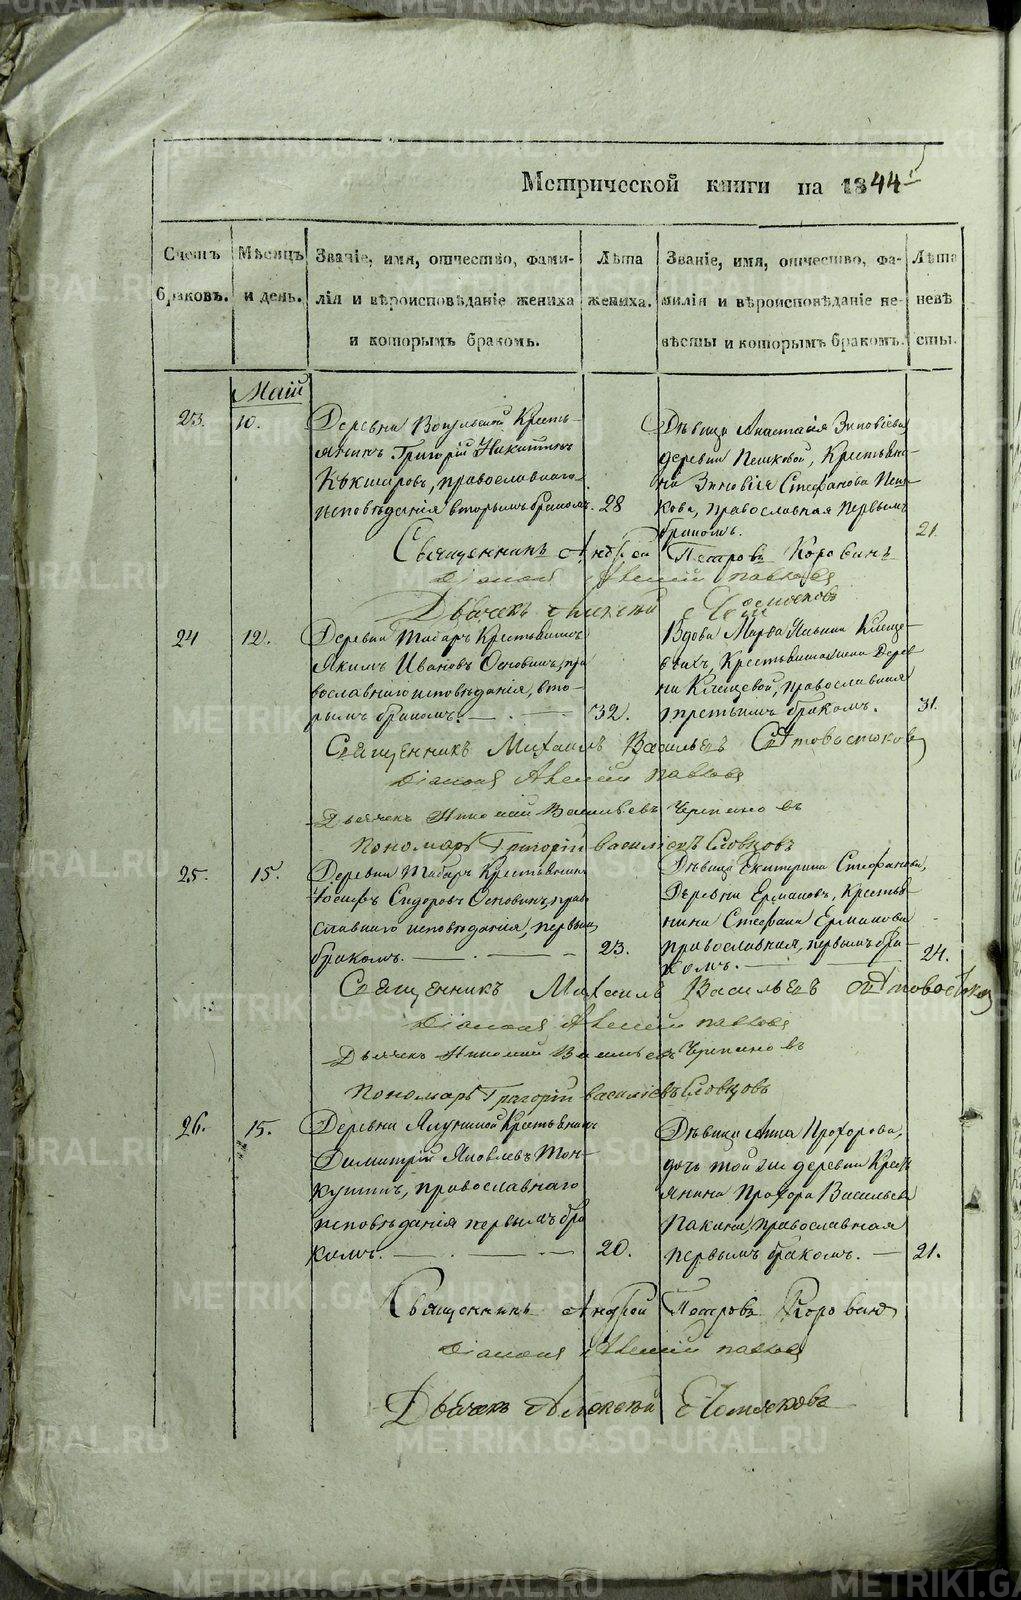 METRIKI.GASO-URAL.RU
Метрической книги на 1844 г.
Счетъ браковъ.
Мѣсяцъ и день.
Званіе, имя, отчество, фами-
лія и вѣроисповѣданіе жениха
и которымъ бракомъ.
Лѣта жениха.
Званіе, имя, отчество, фа-
милія и вѣроисповѣданіе не-
вѣсты и которымъ бракомъ.
Лѣта невѣсты.
Маій
23. 10.
Деревни Крестья-
янинъ Григорій Никитинъ
православнаго
исповѣданія вторымъ бракомъ. 28
Дѣвица Анастасія Зиновіева
деревни Пешковой, Крестьяни-
на Зиновія Стефанова Пеш-
кова, православная первымъ
бракомъ. 21.
Священникъ Андрей Петровъ Коровинъ
Діаконъ Павловъ
Дьячекъ Алексѣй
24 12.
Деревни Табаръ Крестьянинъ
Якимъ Ивановъ Осповинъ, пра
вославнаго исповѣданія, вто-
рымъ бракомъ. 32.
Вдова Марѳа Ильина Клеще-
выхъ, Крестьянская жена Дерев
ни Клещевой, православная
третьимъ бракомъ. 31.
Священникъ Михаилъ Васильевъ
Діаконъ Павловъ
Дьячекъ Николай Васильевъ
Пономарь Григорій Василіевъ Словцовъ
25. 15.
Деревни Табаръ Крестьянинъ
Іосифъ Сидоровъ Осповинъ, право
славнаго исповѣданія, первымъ
бракомъ. 23.
Дѣвица Екатерина Стефанова,
Деревни Ермаковъ, Крестья-
нина Стефана Ермакова
православная, первымъ бра
комъ. 24.
Священникъ Михаилъ Васильевъ
Діаконъ Павловъ
Дьячекъ Николай Васильевъ
Пономарь Григорій Василіевъ Словцовъ
26. 15.
Деревни Крестьянинъ
Димитрій Яковлевъ
православнаго
исповѣданія первымъ бра
комъ. 20.
Дѣвица Анна Прохорова,
дочь той же деревни Крест
янина Прохора Васильева
Пакина, православная
первымъ бракомъ. 21.
Священникъ Андрей Петровъ Коровинъ
Діаконъ Павловъ
Дьячекъ Алексѣй